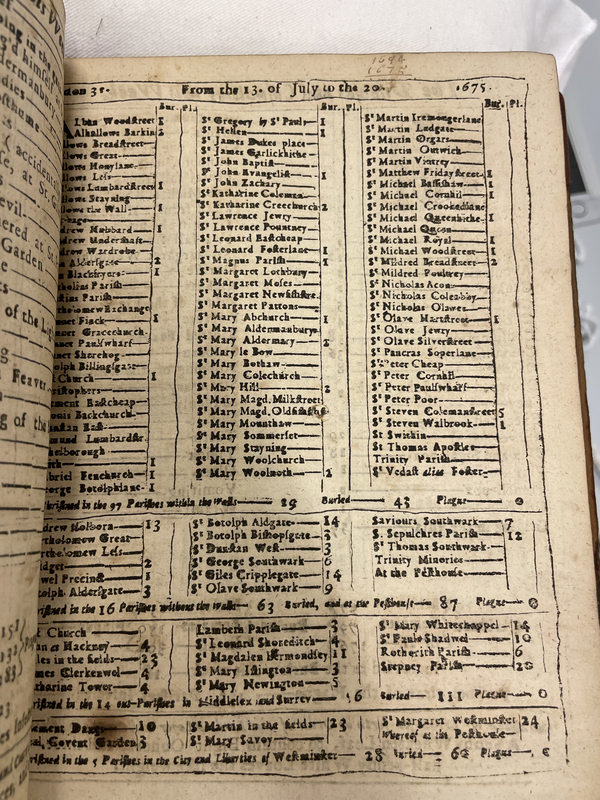 1675
don 31. From the 13. of July to the 20. 1675.
Bur. Pl.
Alban Woodstreet 1
Alhallows Barkin 2
llows Breadstreet
llows Great
llows Honylane
llows Less
llows Lumbardstreet 1
llows Stayning
llows the Wall 1
drew Hubbard 1
drew Undershaft
drew Wardrobe
Aldersgate 2
n Blackfryars 1
tholins Parish
stins Parish
tholomew Exchange
net Finck 1
net Gracechurch
net Paulswharf
net Sherehog
olph Billingsgate
Church 1
istophers
ment Eastcheap
onis Backchurch
nstan East
mund Lumbardstr.
helborough
ith 1
briel Fenchurch 1
eorge Botolphlane 1
Bur. Pl.
St Gregory by St Pauls 1
St Hellen 1
St James Dukes place
St James Garlickhithe
St John Baptist
St John Evangelist 1
St John Zachary
St Katharine Coleman
St Katharine Creechurch 2
St Lawrence Jewry
St Lawrence Pountney
St Leonard Eastcheap
St Leonard Fosterlane 1
St Magnus Parish 1
St Margaret Lothbury
St Margaret Moses
St Margaret Newfishstre.
St Margaret Pattons
St Mary Abchurch 1
St Mary Aldermanbury
St Mary Aldermary 2
St Mary le Bow
St Mary Bothaw
St Mary Colechurch
St Mary Hill 2
St Mary Magd. Milkstreet
St Mary Magd. Oldfishst
St Mary Mounthaw
St Mary Somerset
St Mary Stayning
St Mary Woolchurch
St Mary Woolnoth 2
Bur. Pl.
St Martin Iremongerlane
St Martin Ludgate
St Martin Orgars
St Martin Outwich
St Martin Vintrey
St Matthew Fridaystreet 1
St Michael Bassishaw 1
St Michael Cornhil 1
St Michael Crookedlane
St Michael Queenhithe 1
St Michael Quern
St Michael Royal 1
St Michael Woodstreet 1
St Mildred Breadstreet 2
St Mildred Poultrey
St Nicholas Acon
St Nicholas Coleabby
St Nicholas Olaves
St Olave Hartstreet 1
St Olave Jewry
St Olave Silverstreet
St Pancras Soperlane
St Peter Cheap
St Peter Cornhil
St Peter Paulswharf
St Peter Poor
St Steven Colemanstreet 5
St Steven Walbrook 1
St Swithin
St Thomas Apostles
Trinity Parish
St Vedast alias Foster
hristned in the 97 Parishes within the Walls 29 Buried 43 Plague 0
drew Holborn 13
tholomew Great
tholomew Less
idget 2
wel Precinct 1
olph Aldersgate 3
St Botolph Aldgate 14
St Botolph Bishopsgate 3
St Dunstan West 3
St George Southwark 6
St Giles Cripplegate 14
St Olave Southwark 9
Saviours Southwark 7
S. Sepulchres Parish 12
St Thomas Southwark
Trinity Minories
At the Pesthouse
ristned in the 16 Parishes without the Walls 63 Buried, and at the Pesthouse 87 Plague 0
t Church
an at Hackney 4
iles in the fields 23
ames Clerkenwel 4
tharine Tower 4
Lambeth Parish 3
St Leonard Shoreditch 4
St Magdalen Bermondsey 11
St Mary Islington 3
St Mary Newington 5
St Mary Whitechappel 14
St Pauls Shadwel 10
Rotherith Parish 6
Stepney Parish 20
ristned in the 14 out-Parishes in Middlesex and Surrey 56 Buried 111 Plague 0
lement Danes 10
ul, Covent Garden 3
St Martin in the fields 23
St Mary Savoy
St Margaret Westminster 24
Whereof at the Pesthouse
ristned in the 5 Parishes in the City and Liberties of Westminster 28 Buried 60 Plague 0